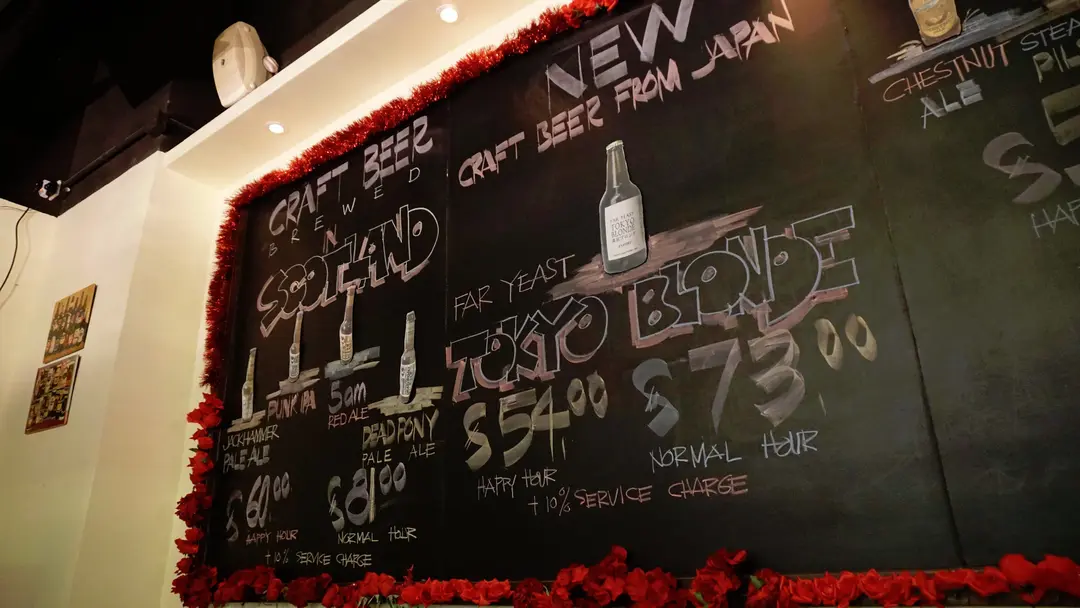 CRAFT BEER
BREWED
IN
SCOTLAND
JACKHAMMER
PALE ALE
PUNK IPA
5am
RED ALE
DEAD PONY
PALE ALE
$60.00
HAPPY HOUR
$81.00
NORMAL HOUR
+10% SERVICE CHARGE
NEW
CRAFT BEER FROM JAPAN
FAR YEAST
TOKYO BLONDE
$54.00
HAPPY HOUR
$73.00
NORMAL HOUR
+10% SERVICE CHARGE
TOKYO
BLONDE
CHESTNUT
ALE